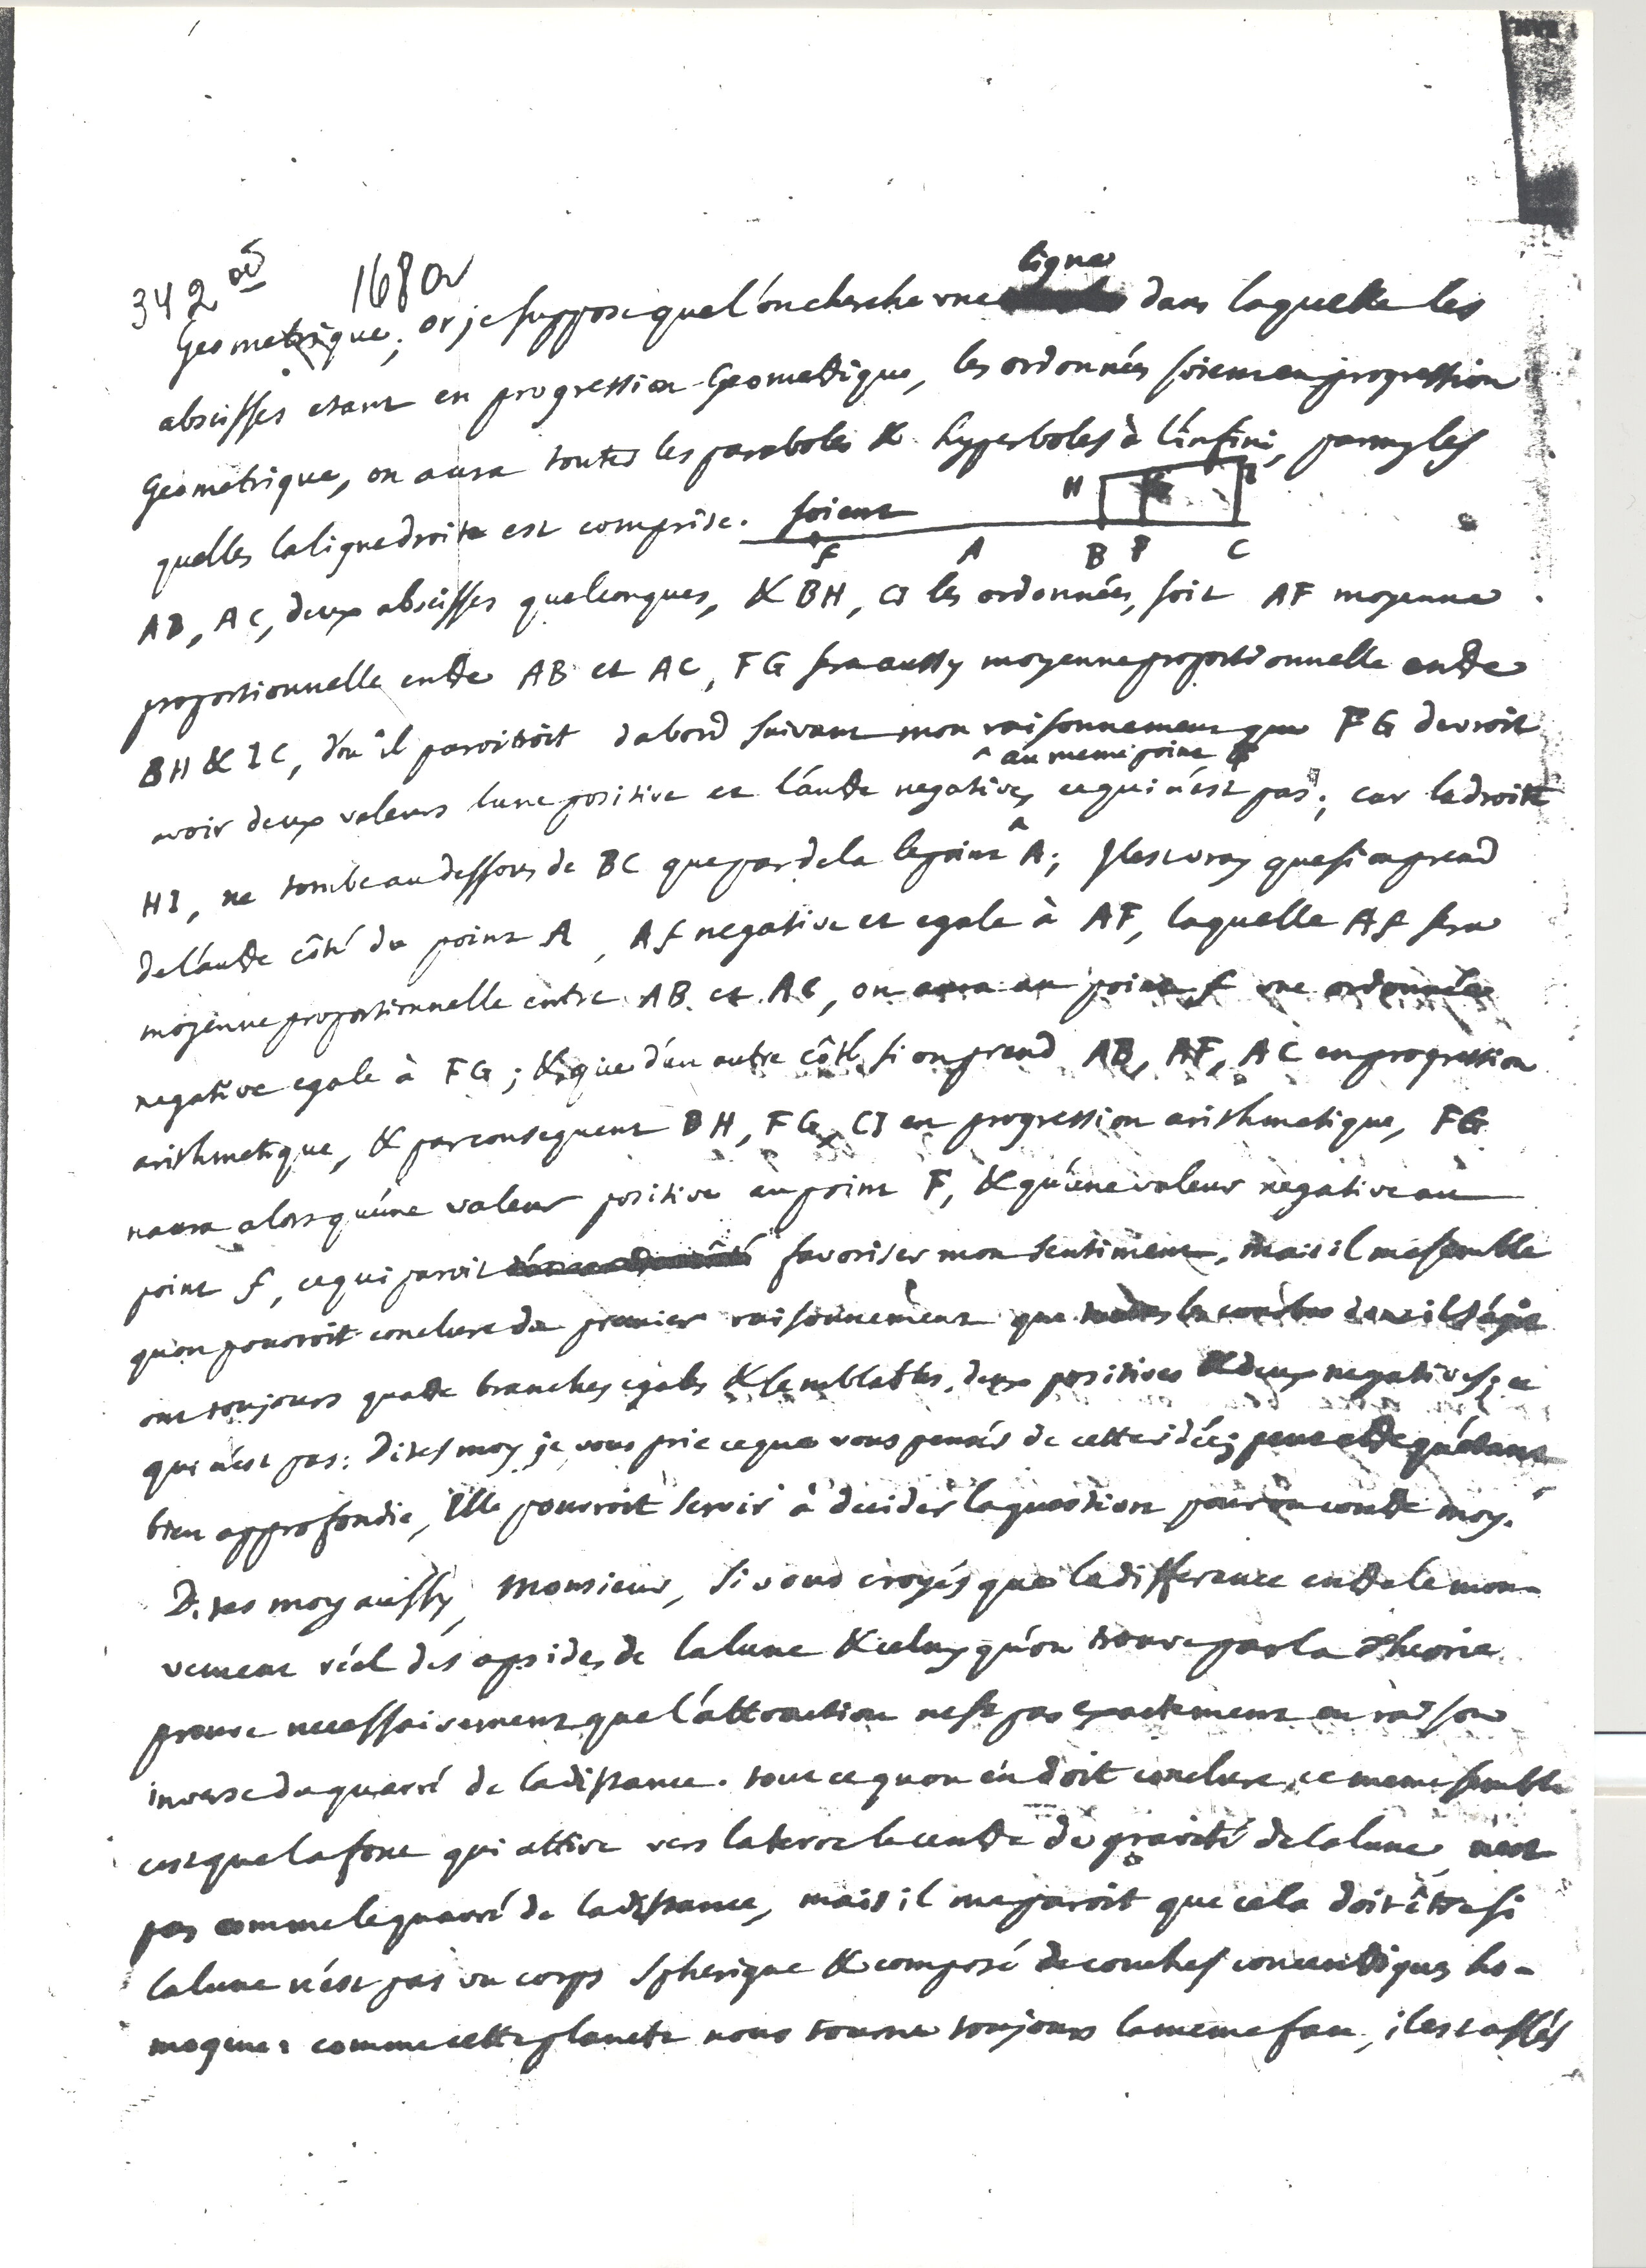 342 168 or
ligne
Geometrique; or je suppose que l'on cherche une dans laquelle les
abscisses etant en progression Geometrique, les ordonnées soient en progression
Geometrique, on aura toutes les paraboles & hyperboles à l'infini, parmy les
quelles la ligne droite est comprise. soient
H G I
f A B F C
AB, AC, deux abscisses quelconques, & BH, CI les ordonnées, soit AF moyenne
proportionnelle entre AB et AC, FG sera aussy moyenne proportionnelle entre
BH & IC, d'où il paroitroit dabord suivant mon raisonnement que FG devroit
^ au meme point F
avoir deux valeurs lune positive et l'autre negative, ce qui n'est pas; car la droite
HI, ne tombe au dessous de BC que par dela le point A; Il est vray que si on prend
de l'autre côté du point A, Af negative et egale à AF, laquelle Af sera
moyenne proportionnelle entre AB et AC, on aura au point f une ordonnée
negative egale à FG; & que d'un autre côté, si on prend AB, AF, AC en progression
arithmetique, & par consequent BH, FG, CI en progression arithmetique, FG
naura alors qu'une valeur positive au point F, & qu'une valeur negative au
point f, ce qui paroit favoriser mon sentiment, mais il me semble
qu'on pouroit conclure du premier raisonnement que toutes les courbes dont il s'agit
ont toujours quatre branches egales & semblables, deux positives & deux negatives; ce
qui n'est pas: Dites moy je vous prie ce que vous pensés de cette idée; peut etre qu'étant
bien approfondie, Elle pourroit servir à decider la question pour ou contre moy.
Dites moy aussy, Monsieur, si vous croyés que la difference entre le mou-
vement réel des apsides de la lune & celuy qu'on trouve par la Theorie
prouve necessairement que l'attraction nest pas exactement en raison
inverse du quarré de la distance. tout ce quon en doit conclure, ce me semble
cest que la force qui attire vers la terre le centre de gravité de la lune nest
pas comme le quarré de la distance, mais il me paroit que cela doit être si
la lune n'est pas un corps spherique & composé de couches concentriques ho-
mogenes comme cette planete nous tourne toujours la meme face, il est assés